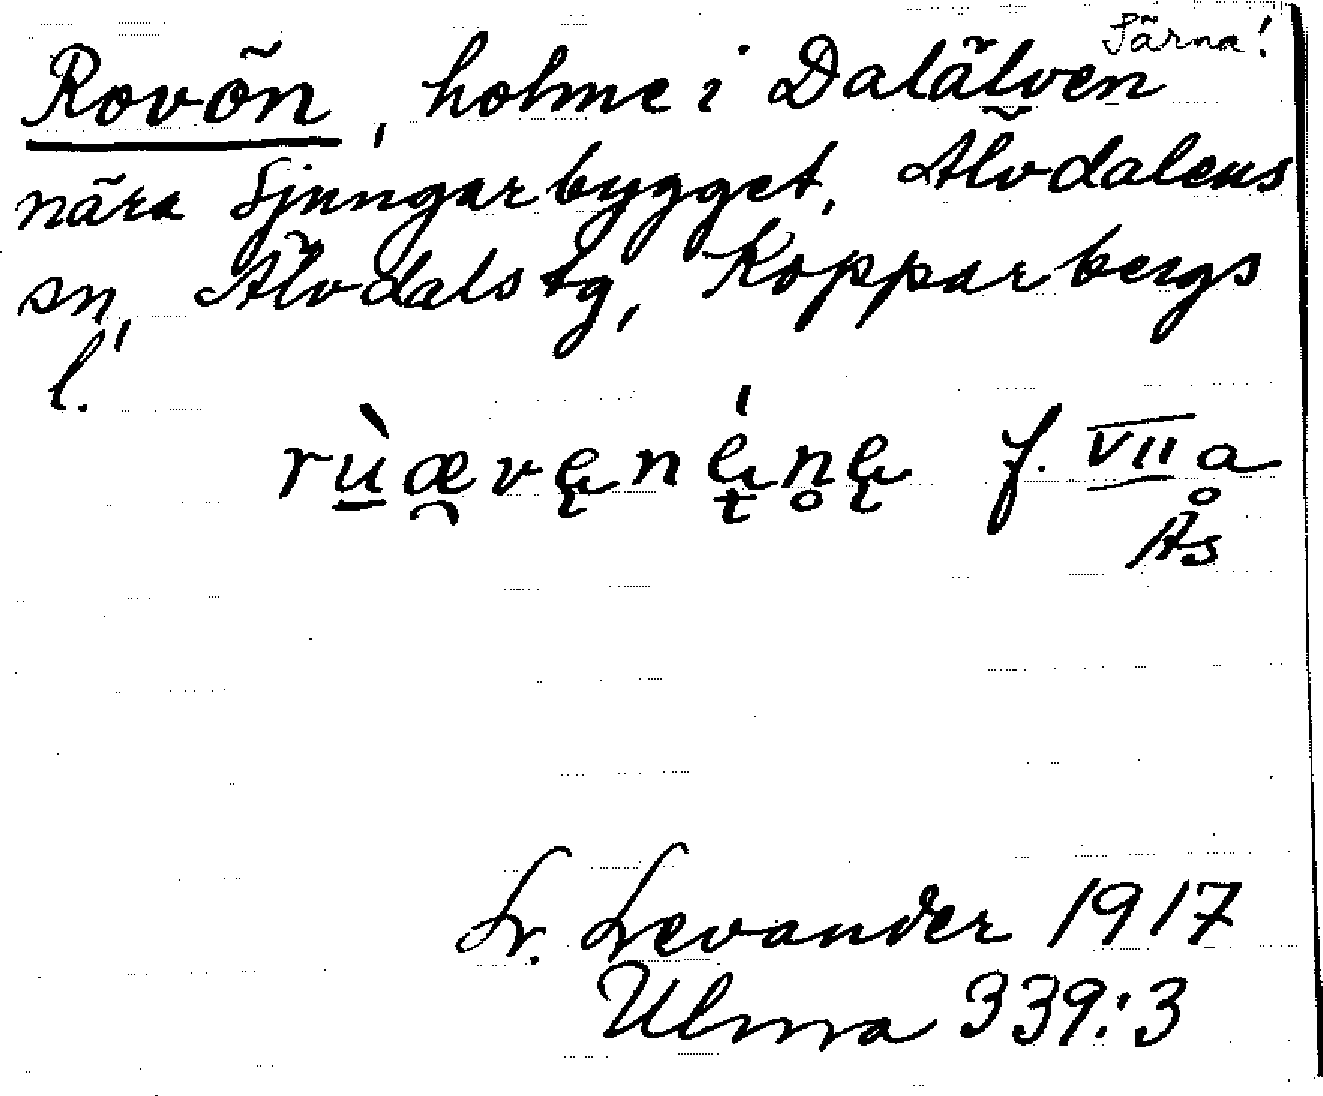 Särna!
Rovön, holme i Dalälven
nära Ljungarbygget, Älvdalens
sn, Älvdals tg, Kopparbergs
l.
f. VII a
Ås
L. Levander 1917
Ulma 339:3